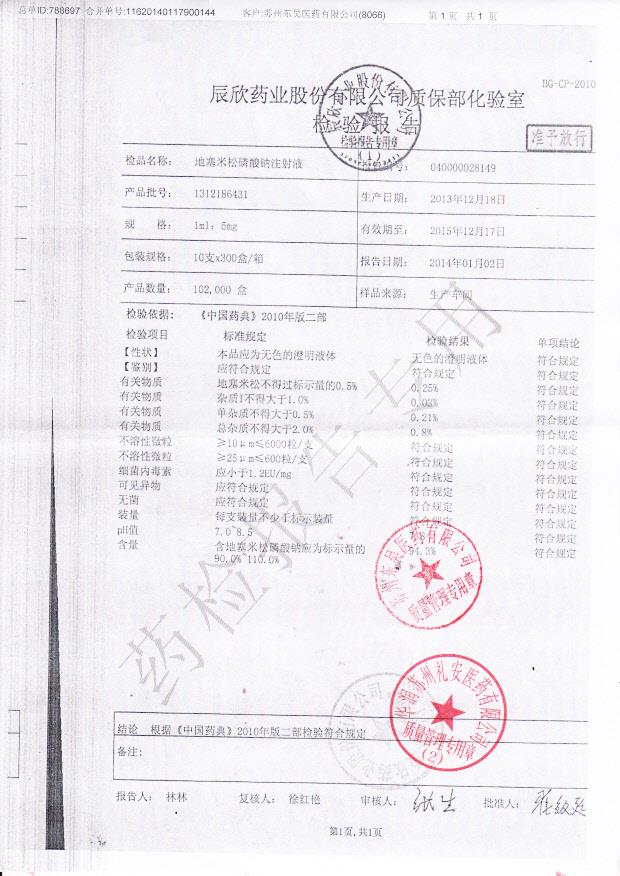 总单ID:788697 合并单号:11620140117900144 客户:苏州东吴医药有限公司(8066) 第 1 页 共 1 页
BG-CP-2010
辰欣药业股份有限公司质保部化验室
检 验 报 告
准予放行
检验报告专用章
(1)
检品名称: 地塞米松磷酸钠注射液 040000028149
产品批号: 1312186431 生产日期: 2013年12月18日
规 格: 1ml:5mg 有效期至: 2015年12月17日
包装规格: 10支x300盒/箱 报告日期: 2014年01月02日
产品数量: 102,000 盒 样品来源: 生产车间
检验依据: 《中国药典》2010年版二部
检验项目 标准规定 检验结果 单项结论
【性状】 本品应为无色的澄明液体 无色的澄明液体 符合规定
【鉴别】 应符合规定 符合规定 符合规定
有关物质 地塞米松不得过标示量的0.5% 0.25% 符合规定
有关物质 杂质I不得大于1.0% 0.03% 符合规定
有关物质 单杂质不得大于0.5% 0.21% 符合规定
有关物质 总杂质不得大于2.0% 0.8% 符合规定
不溶性微粒 ≥10μm≤6000粒/支 符合规定 符合规定
不溶性微粒 ≥25μm≤600粒/支 符合规定 符合规定
细菌内毒素 应小于1.2EU/mg 符合规定 符合规定
可见异物 应符合规定 符合规定 符合规定
无菌 应符合规定 符合规定 符合规定
装量 每支装量不少于标示装量 符合规定 符合规定
pH值 7.0~8.5 符合规定
含量 含地塞米松磷酸钠应为标示量的 94.3% 符合规定
90.0%~110.0%
药检报告专用
苏州东吴医药有限公司
质量管理专用章
华润苏州礼安医药有限公司
质量管理专用章
(2)
结论 根据《中国药典》2010年版二部检验符合规定
备注:
报告人: 林林 复核人: 徐红艳 审核人: 批准人:
第1页,共1页